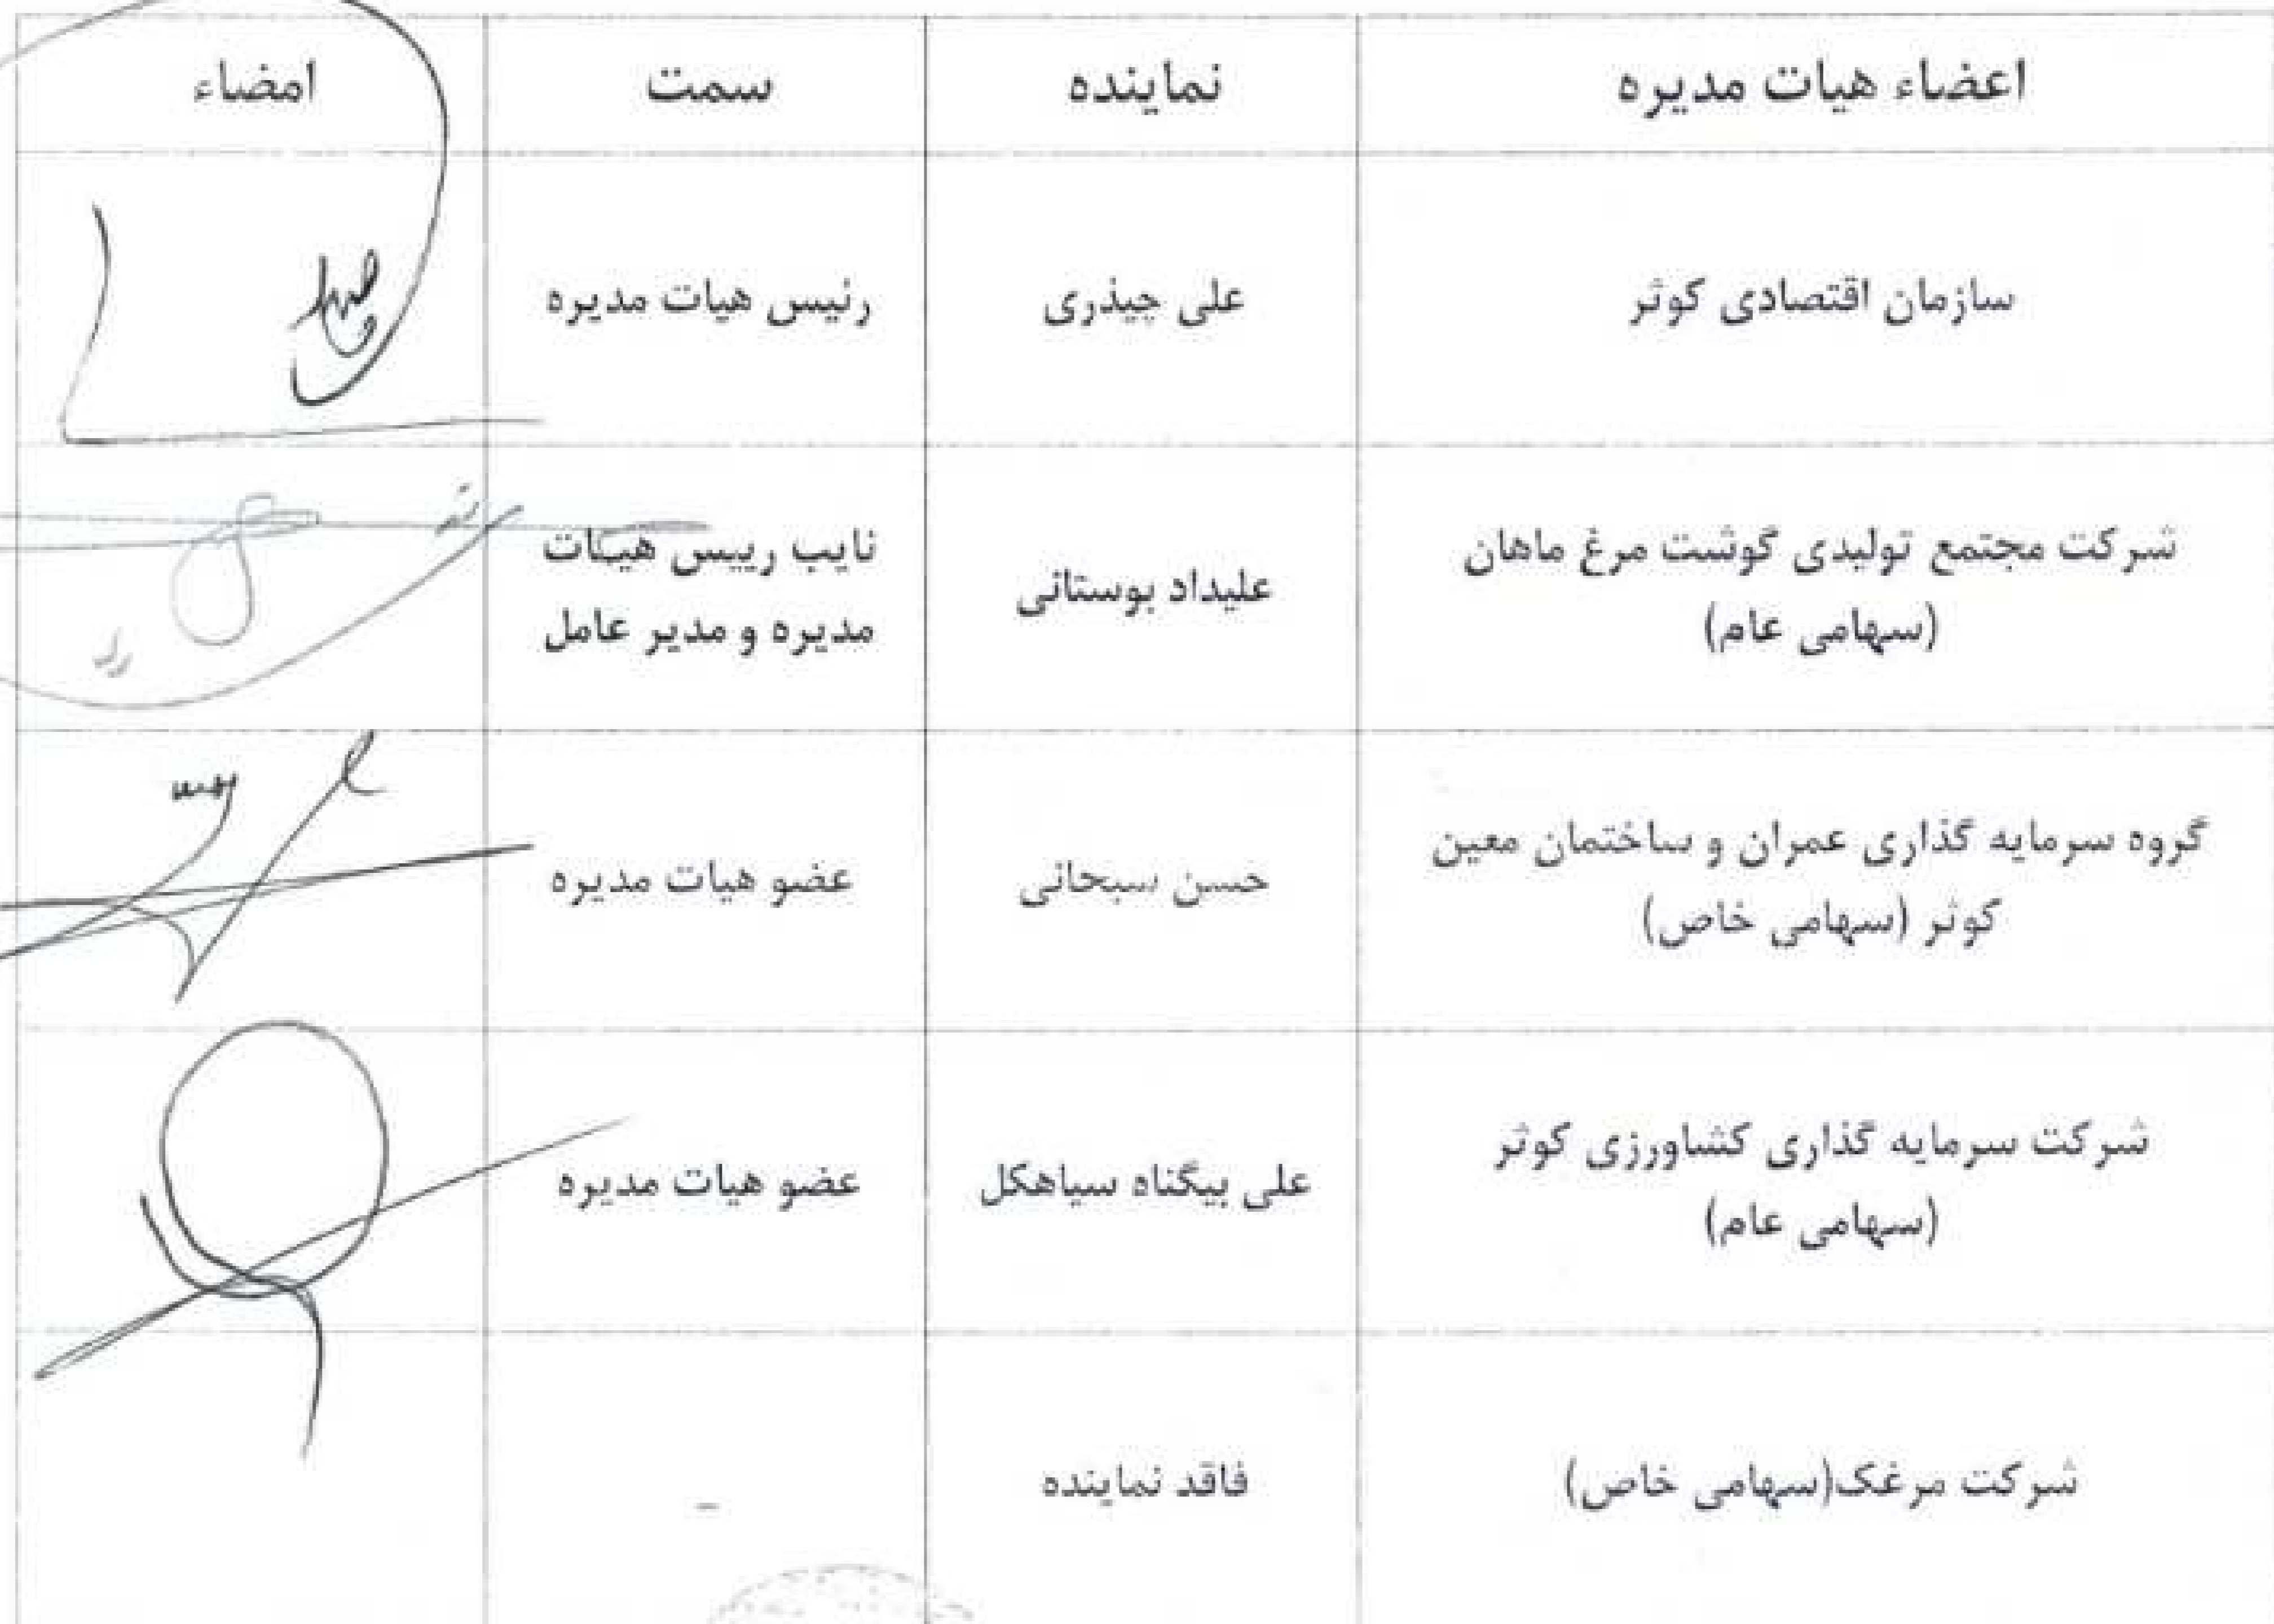 اعضاء هیات مدیره نماینده سمت امضاء
سازمان اقتصادی کوثر علی جیذری رئیس هیات مدیره
شرکت مجتمع تولیدی گوشت مرغ ماهان
(سهامی عام)
علیداد بوستانی
نایب رییس هیئات
مدیره و مدیر عامل
گروه سرمایه گذاری عمران و ساختمان معین
کوثر (سهامی خاص)
حسن سبحانی
عضو هیات مدیره
شرکت سرمایه گذاری کشاورزی کوثر
(سهامی عام)
علی بیگناه سیاهکل
عضو هیات مدیره
شرکت مرغک(سهامی خاص) فاقد نماینده -